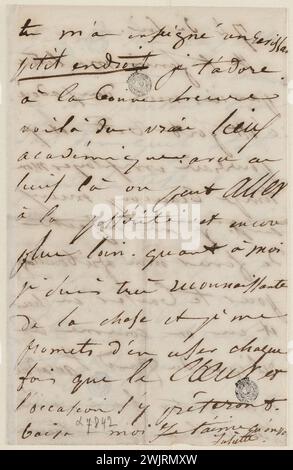 tu m'a enseigné un
petit endroit je t'adore.
à la bonne heure
voilà du vrai
académique avec ce
là on peut aller
à la postérité et encore
plus loin. quant à moi
je suis très reconnaissante
de la chose et je me
promets d'en user chaque
fois que le cœur et
l'occasion s'y prêteront.
baise moi je t'aime
Juliette
27842
alamy
Image ID: 2WJRMXW
www.alamy.com